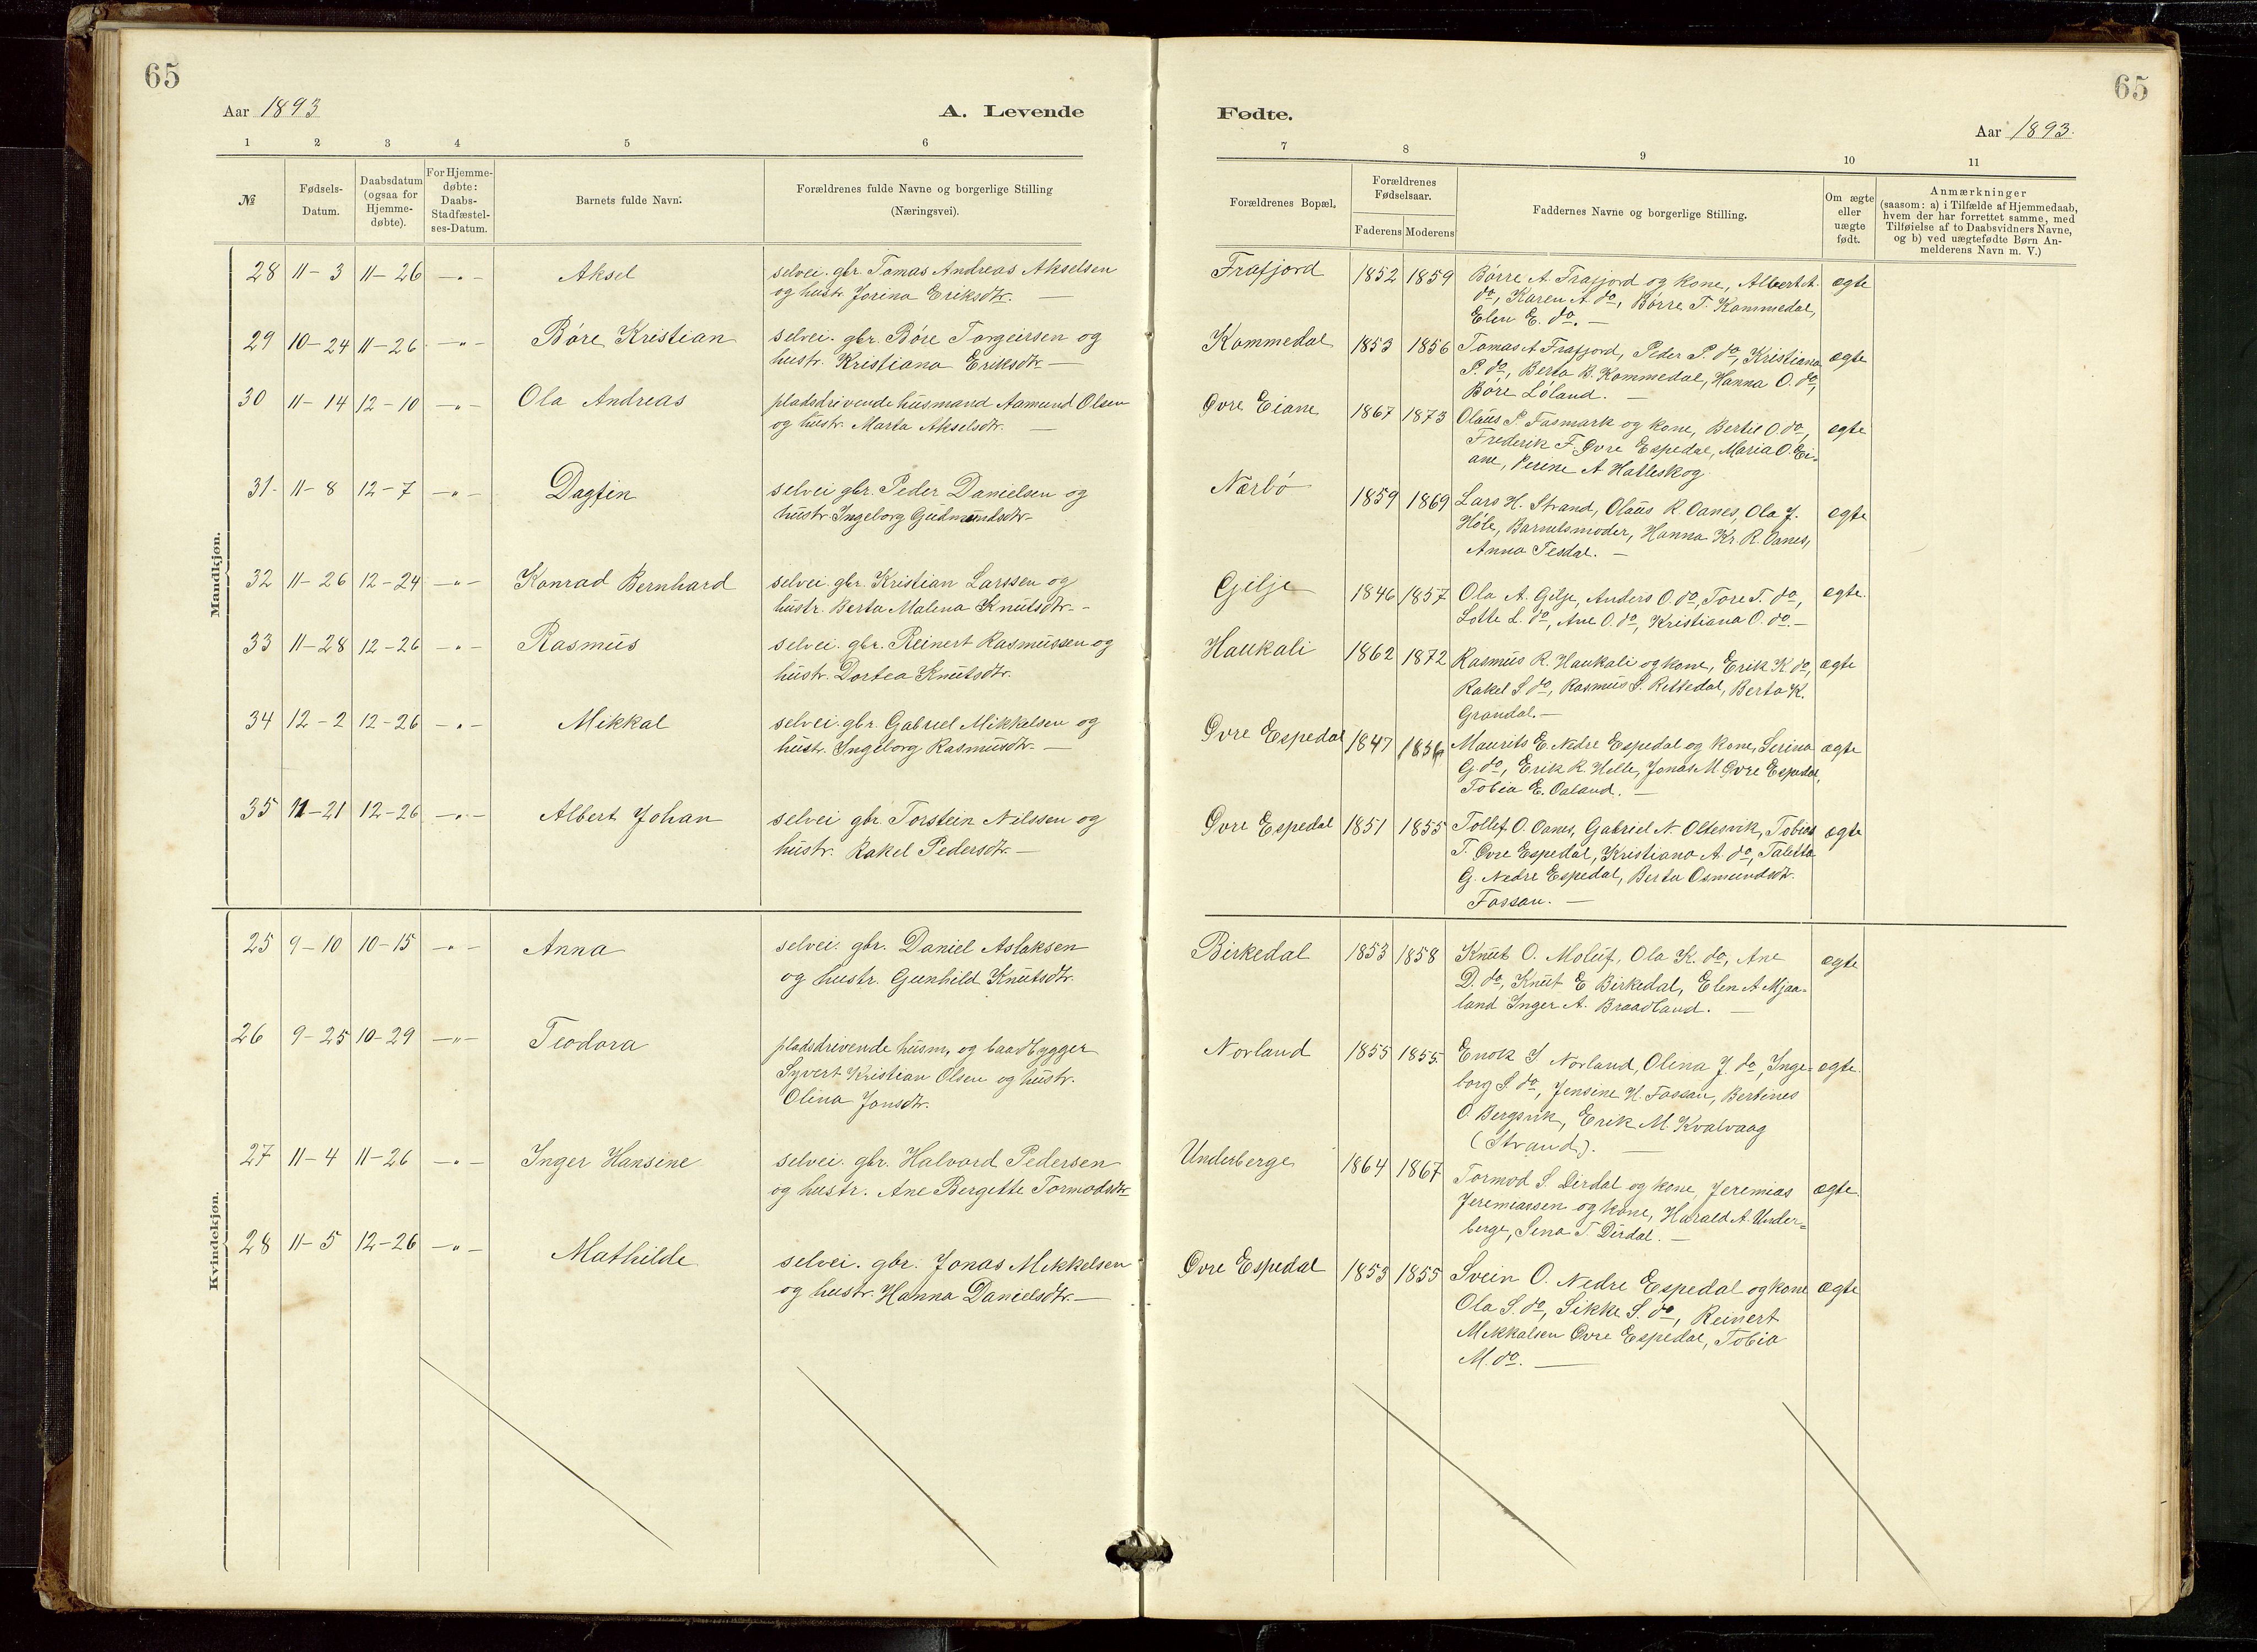 65
Aar 1893
A. Levende
1 2 3 4 5 6
№
Fødsels-
Datum.
Daabsdatum
(ogsaa for
Hjemme-
døbte).
For Hjemme-
døbte:
Daabs-
Stadfæstel-
ses-Datum.
Barnets fulde Navn.
Forældrenes fulde Navne og borgerlige Stilling
(Næringsvei).
Mandkjøn.
28 11-3 11-26 -"- Aksel selvei. gbr. Tomas Andreas Akselsen
og hustr. Jorina Eriksdtr. —
29 10-24 11-26 -"- Bóre Kristian selvei. gbr. Bóre Torgeirsen og
hustr. Kristiana Eriksdtr. —
30 11-14 12-10 -"- Ola Andreas pladsdrivende husmand Aamund Olsen
og hustr. Marta Akselsdtr. —
31. 11-8 12-7 -"- Dagfin selvei gbr. Peder Danielsen og
hustr. Ingeborg Gudmundsdtr. -
32 11-26 12-24 -"- Konrad Bernhard selvei. gbr. Kristian Larssen og
hustr. Berta Malena Knutsdtr. -
33 11-28 12-26 -"- Rasmus selvei. gbr. Reinert Rasmussen og
hustr. Dortea Knutsdtr.
34 12-2 12-26 -"- Mikkal selvei. gbr. Gabriel Mikkelsen og
hustr. Ingeborg Rasmusdtr. —
35 11-21 12-26 -"- Albert Johan selvei gbr Torstein Nilssen og
hustr. Rakel Pedersdtr. —
Kvindekjøn.
25 9-10 10-15 -"- Anna selvei. gbr. Daniel Aslaksen
og hustr. Gunhild Knutsdtr.
26 9-25 10-29 -"- Teodora pladsdrivende husm. og baadbygger
Syvert Kristian Olsen og hustr.
Olina Jonsdtr.
27 11-4 11-26 -"- Inger Hansine selvei. gbr. Halvard Pedersen
og hustr. Ane Bergette Tormodsdtr
28 11-5 12-26 -"- Mathilde selvei. gbr. Jonas Mikkelsen
og hustr. Hanna Danielsdtr. —
65
Fødte.
Aar 1893.
7 8 9 10 11
Forældrenes Bopæl.
Forældrenes
Fødselsaar.
Faderens Moderens
Faddernes Navne og borgerlige Stilling.
Om ægte
eller
uægte
født.
Anmærkninger
(saasom: a) i Tilfælde af Hjemmedaab,
hvem der har forrettet samme, med
Tilføielse af to Daabsvidners Navne,
og b) ved uægtefødte Børn An-
melderens Navn m. V.)
Frafjord 1852 1859 Bórre A. Frafjord og kone, Albert A. ægte
do, Karen A. do, Bórre T. Kommedal,
Elen E. do. —
Kommedal 1853 1856 Tomas A Frafjord, Peder P. do, Kristiana ægte
P. do, Berta B. Kommedal, Hanna O. do,
Bóre Lóland. —
Øvre Eiane 1867 1873 Olaus P. Fosmark og kone, Bertie O. do, ægte
Frederik F. Øvre Espedal, Maria O. Ei-
ane, Perine A Hatleskog.
Nærbó 1859 1869 Lars H. Strand, Olaus R. Oanes, Ola J. ægte
Hóle, Barnets moder, Hanna Kr. R. Oanes,
Anna Tesdal. —
Gilje 1846 1857 Ola A. Gilje, Anders O. do, Tore T. do, ægte.
Lotte L. do, Ane O. do, Kristiana O. do. —
Haukali 1862 1872 Rasmus R. Haukali og kone, Erik K. do, ægte
Rakel S. do, Rasmus S. Rettedal, Berta K.
Grandal. —
Øvre Espedal 1847 1856 Maurits E. Nedre Espedal og kone, Serina ægte
G. do, Erik R. Helle, Jonas M. Øvre Espedal,
Tobia E. Oaland. —
Øvre Espedal 1851 1855 Tollef O. Oanes, Gabriel N. Oltesvik, Tobias ægte
T. Øvre Espedal, Kristiana A. do, Taletta
G. Nedre Espedal, Berta Osmundsdtr.
Fossan. —
Birkedal 1853 1858 Knut O. Moluf, Ola K. do, Ane ægte
D. do, Knut E Birkedal, Elen A Mjaa-
land Inger A. Braadland. —
Norland 1855 1855. Enok S Norland, Olena J. do, Inge- ægte.
borg S. do, Jensine H. Fossan, Bertines
O. Bergsvik, Erik M. Kvalvaag
(Strand). —
Underberge 1864 1867 Tormod S. Dirdal og kone, Jeremias ægte.
Jeremiassen og kone, Harald A. Under-
berge, Sena T. Dirdal. —
Øvre Espedal 1853 1855 Svein O. Nedre Espedal og kone ægte
Ola S. do, Sikke S. do, Reinert
Mikkalsen Øvre Espedal, Tobia
M. do. —